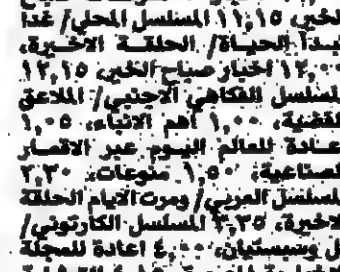 الخير، ١١,١٥ المسلسل المحلي/ غدا
تبدأ الحياة/ الحلقة الاخيرة،
١٢,٠٠ اخبار صباح الخير، ١٢,١٥
المسلسل الفكاهي الاجنبي/ الملاعق
الفضية، ١,٠٠ اهم الانباء، ١,٠٥
اعادة للعالم اليوم عبر الاقمار
الصناعية، ١,٥٠ منوعات، ٢,٣٠
المسلسل العربي/ ومرت الايام الحلقة
الاخيرة، ٣,٣٥ المسلسل الكارتوني/
بل وسبستيان، ٤,٠٠ اعادة للمجلة